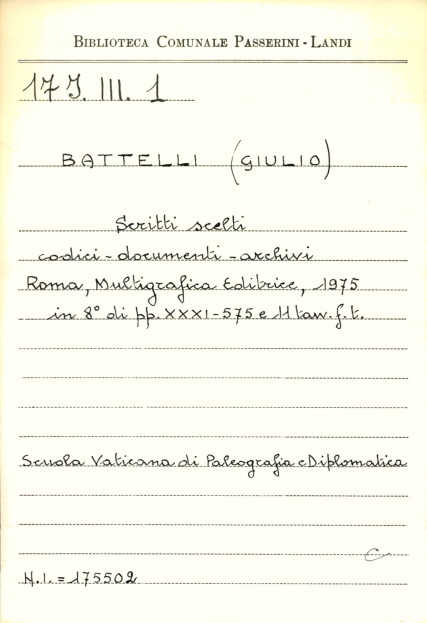 BIBLIOTECA COMUNALE PASSERINI - LANDI
17 J. III. 1
BATTELLI (GIULIO)
Scritti scelti
codici - documenti - archivi
Roma, Multigrafica Editrice, 1975
in 8° di pp. XXXI - 575 e 11 tav. f. t.
Scuola Vaticana di Paleografia e Diplomatica
C
N.I. = 175502